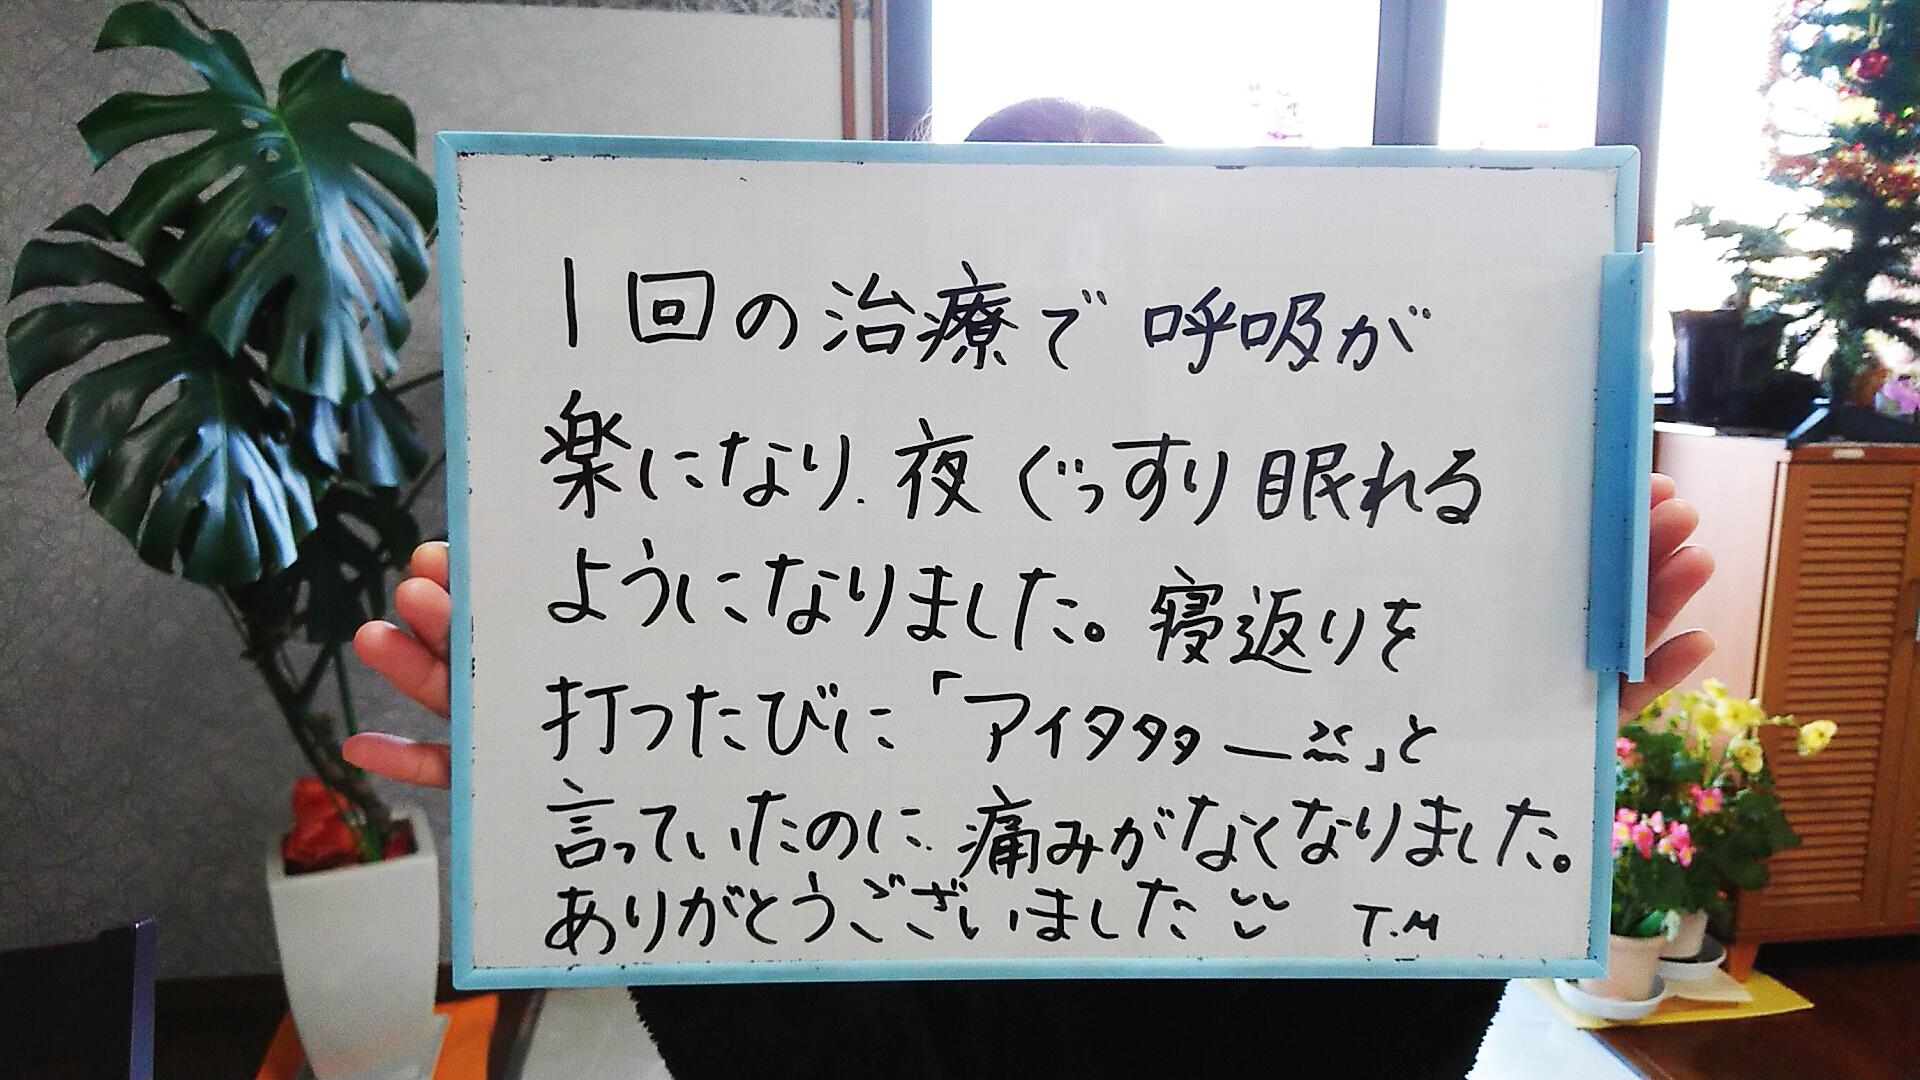 1回の治療で呼吸が
楽になり、夜ぐっすり眠れる
ようになりました。寝返りを
打ったびに「アイタタターー」と
言っていたのに、痛みがなくなりました。
ありがとうございました T.M